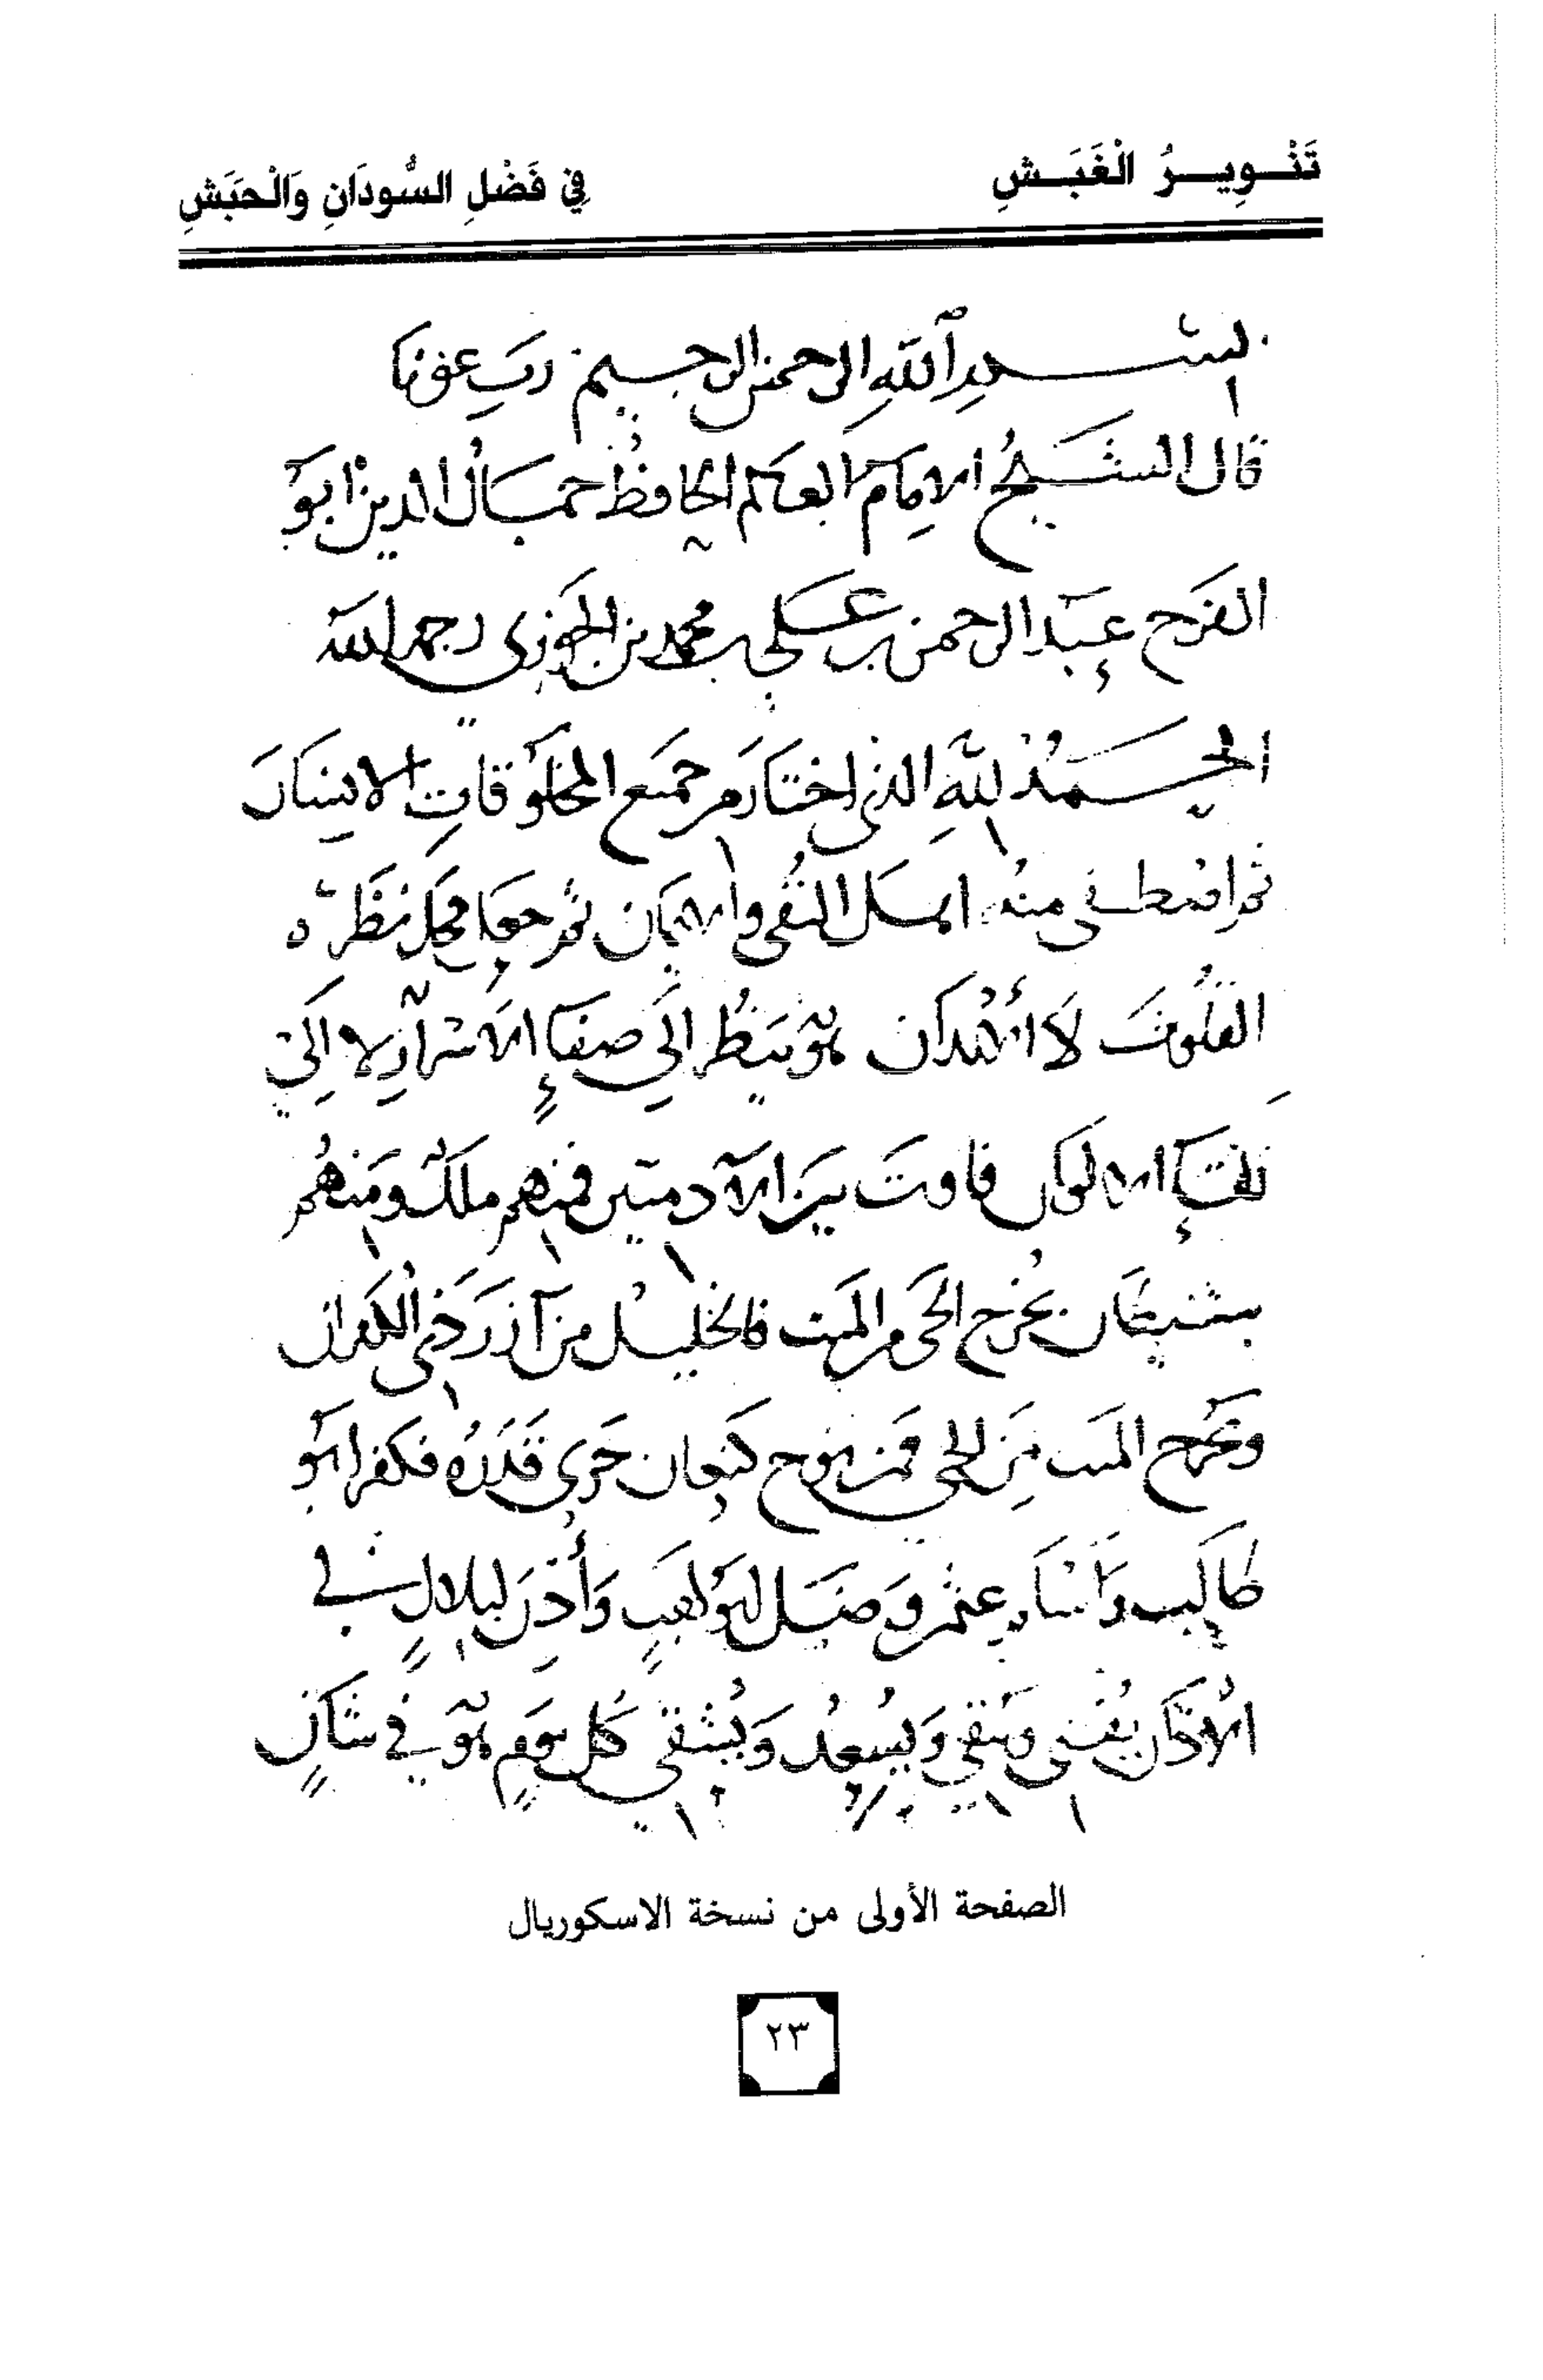 تَنْوِيرُ الْغَبَشِ فِي فَضْلِ السُّودَانِ وَالْحَبَشِ
بسم الله الرحمن الرحيم رب عفوك
قال الشيخ الإمام العالم الحافظ جمال الدين ابو
الفرج عبد الرحمن بن علي بن محمد بن الجوزي رحمه الله
الحمد لله الذي اختار من جميع المخلوقات الانسان
ثم اصطفى منه اهل التقى والايمان ثم جعل محل نظره
القلوب لا الابدان فهو ينظر الى صفاء الاسرار لا الى
نقاء الالوان فاوت بين الآدميين فمنهم ملك ومنهم
شيطان يخرج الحي من الميت فالخليل من آزر
ويخرج الميت من الحي فمن نوح كنعان جرى قدره فكفر ابو
طالب وضل ابو لهب وأذن لبلال في
الاذان يغني ويفقر ويسعد ويشقي كل يوم هو في شان
الصفحة الأولى من نسخة الاسكوريال
٢٣